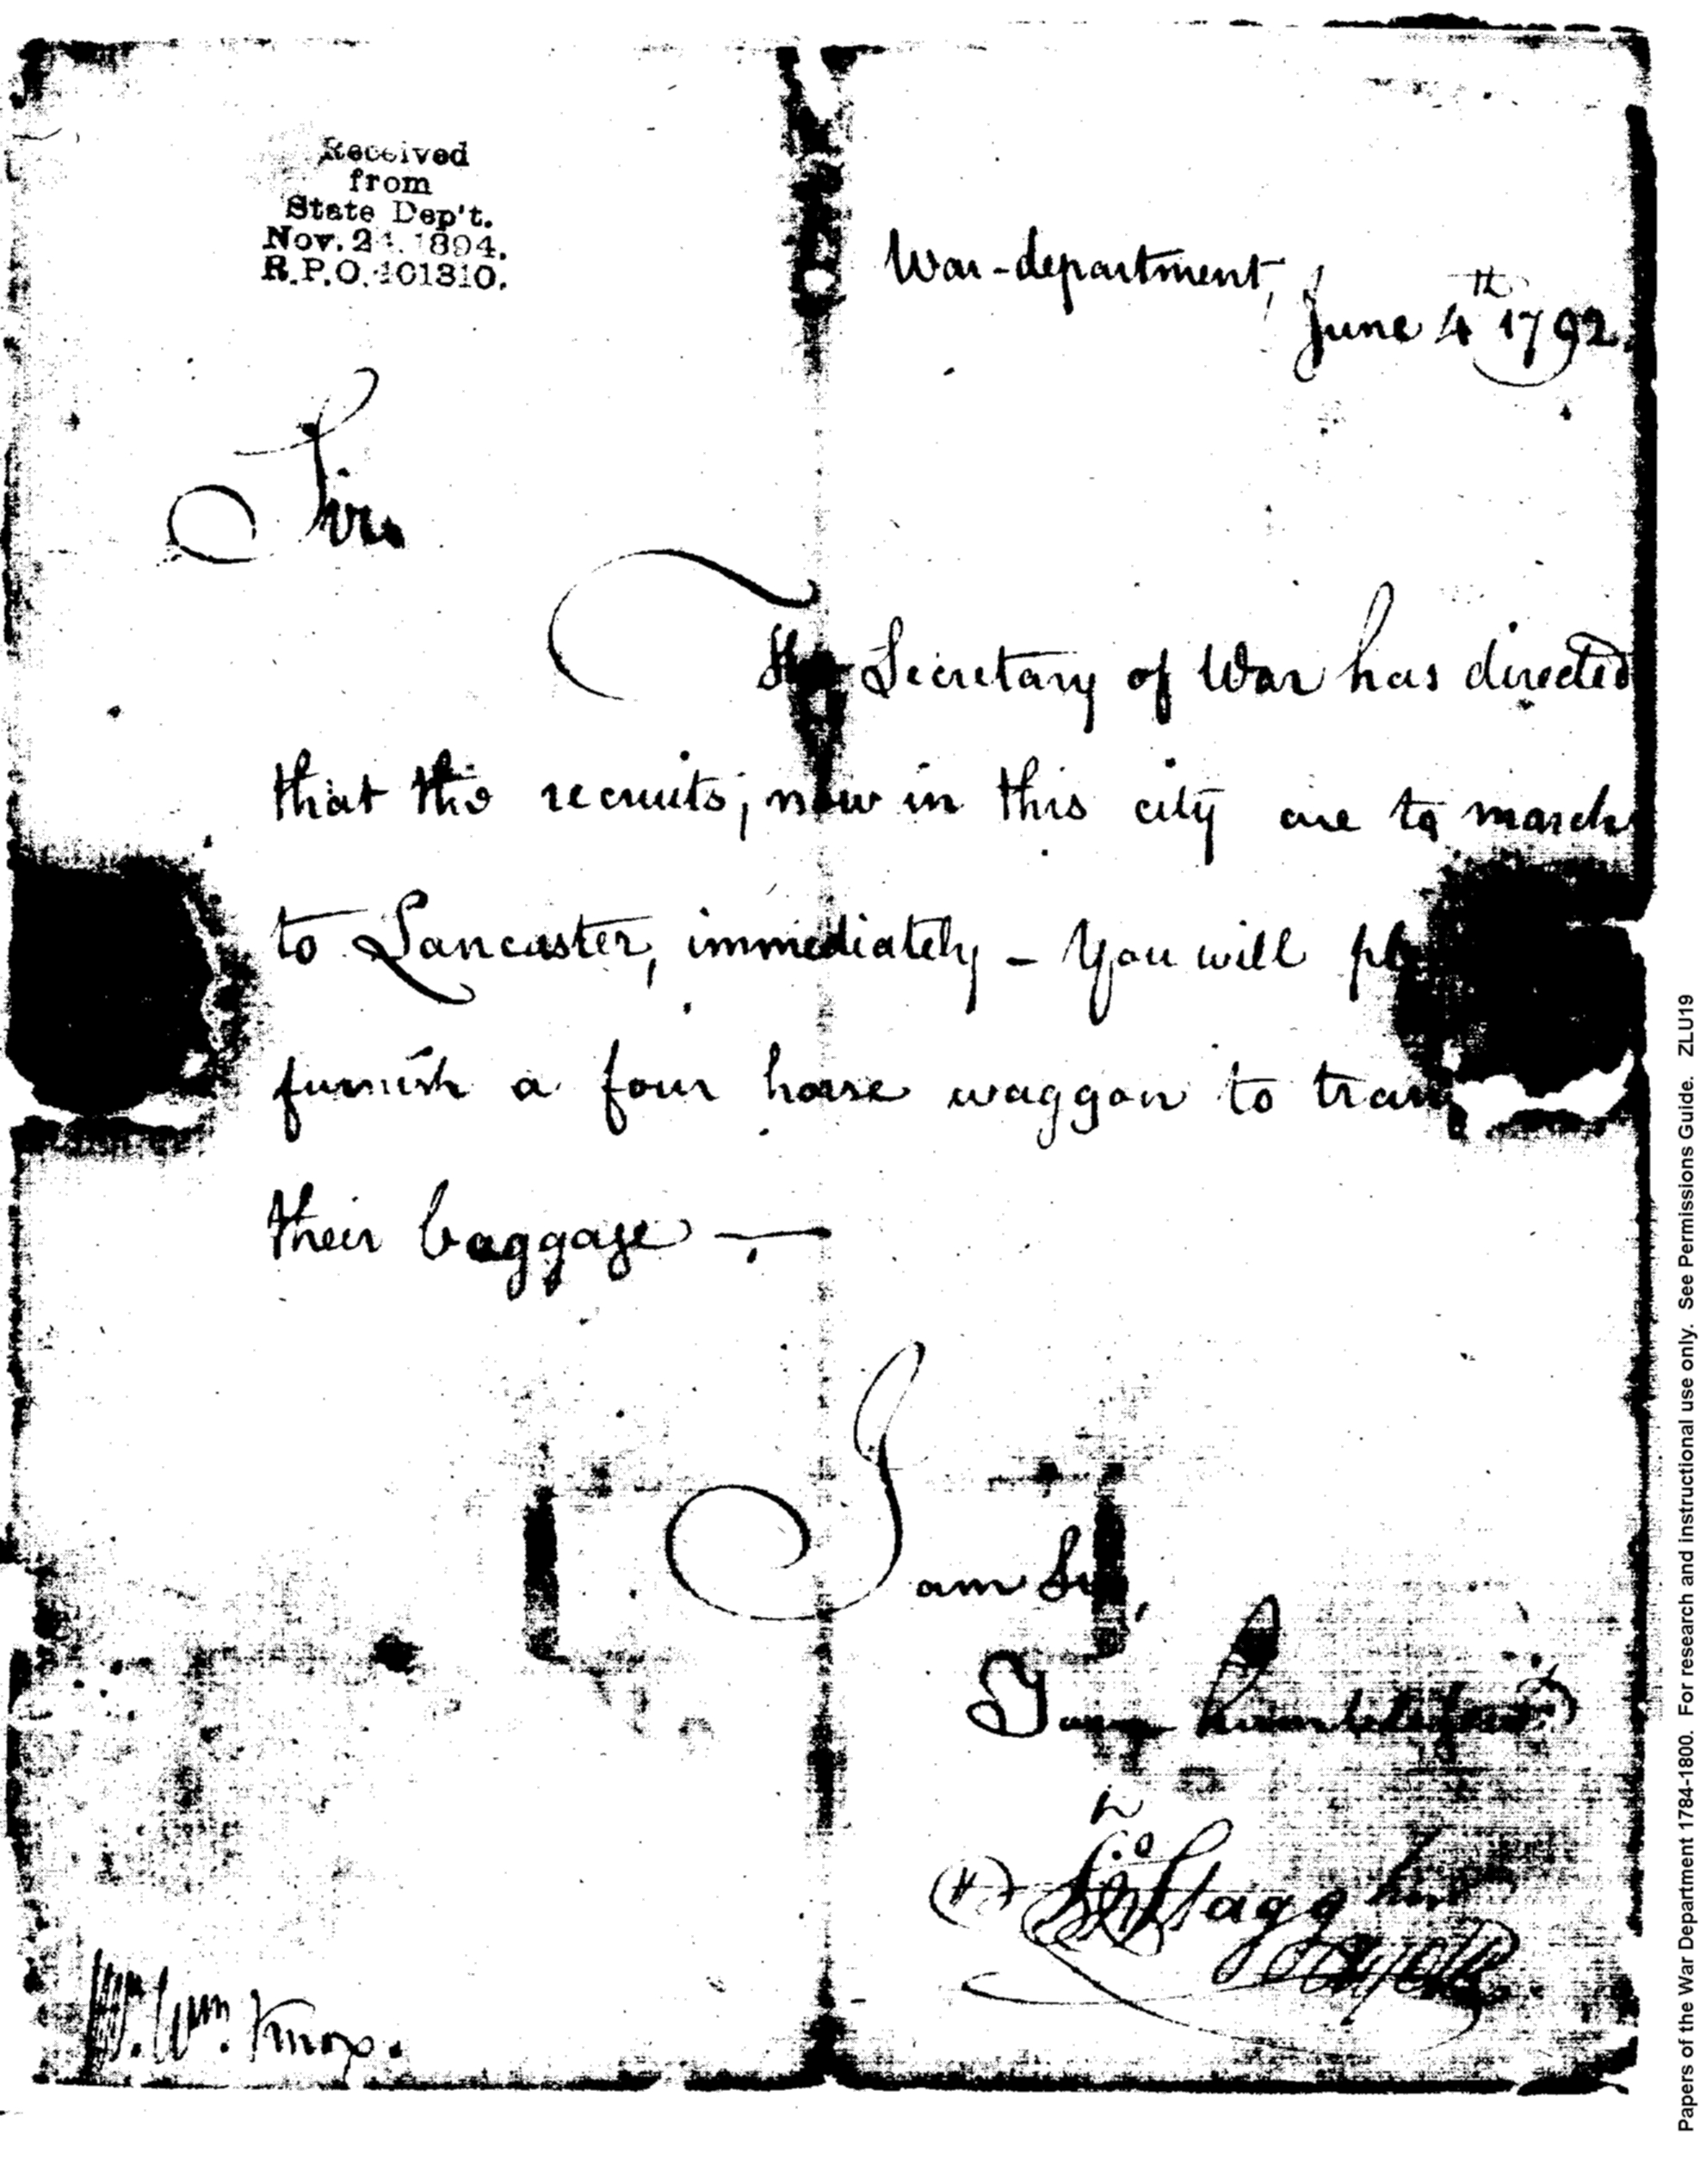 Received
from
State Dep't.
Nov. 24. 1894.
R.P.O. 401310.
War-department,
June 4th 1792.
Sir
The Secretary of War has directed
that the recruits, now in this city are to march
to Lancaster, immediately - You will
furnish a four horse waggon to
their baggage —
I am Sir,
Your
Jno Stagg Junr
Mr. Wm. Knox.
Papers of the War Department 1784-1800. For research and instructional use only. See Permissions Guide. ZLU19